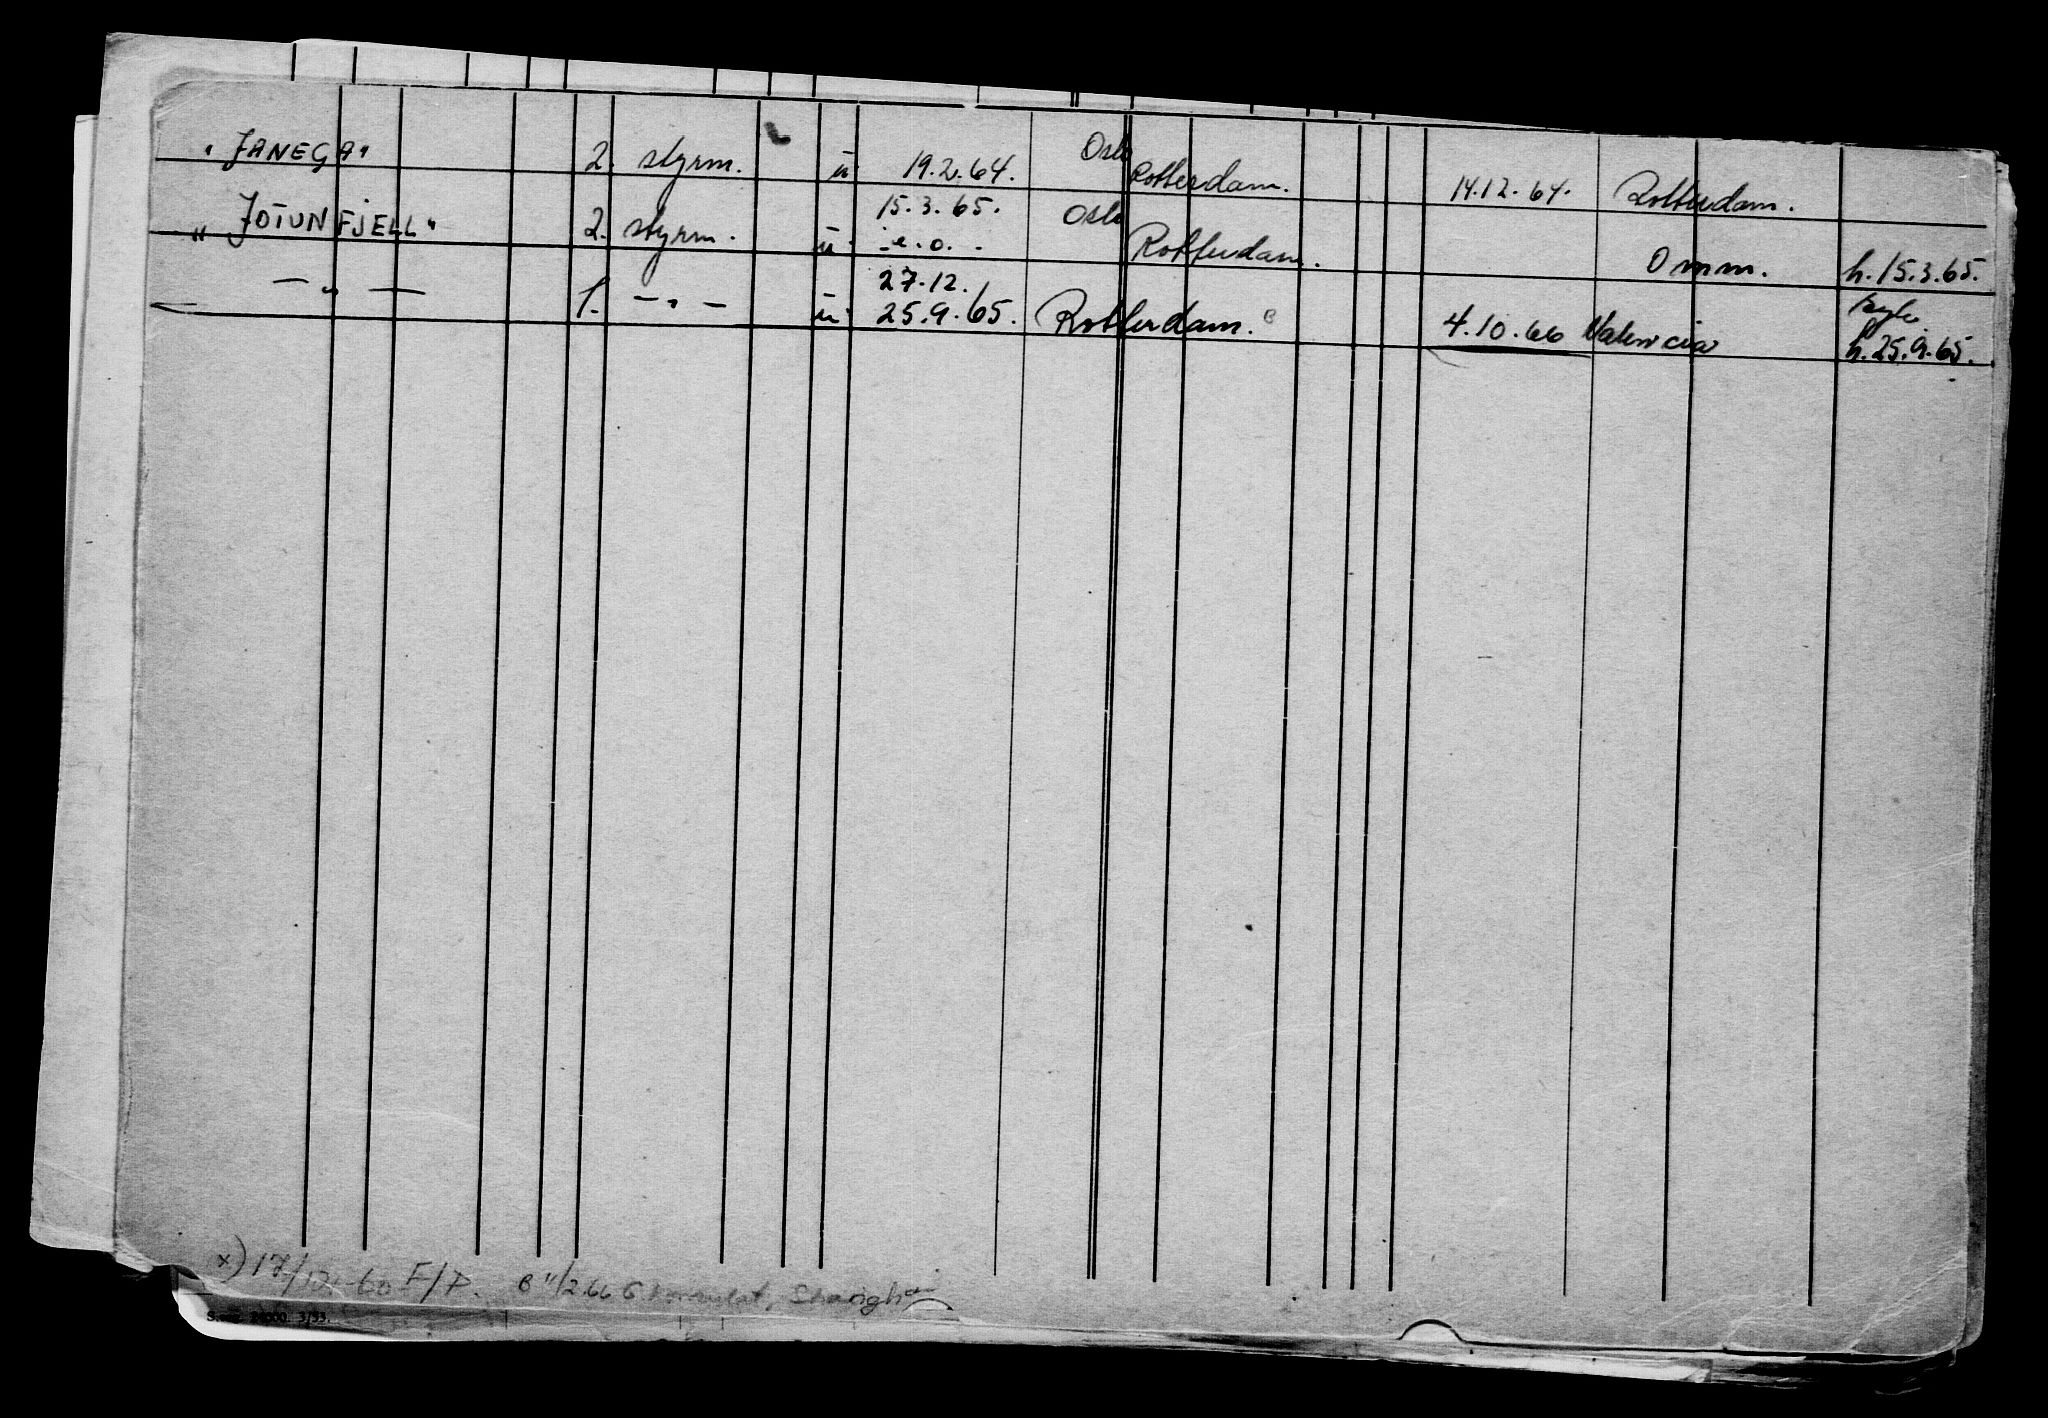 "JANEGA" 2. styrm. u 19.2.64. Oslo Rotterdam. 14.12.64. Rotterdam.
"JOTUNFJELL" 2. styrm. u 15.3.65. e.o. Oslo Rotterdam. Omm. h. 15.3.65.
— " — 1. — " — u 27.12. 25.9.65. Rotterdam. B 4.10.66 Valencia h. 25.9.65.
x) 17/12-60 F/P. B "/2.66 G. konsulat, Shanghai
3/53.